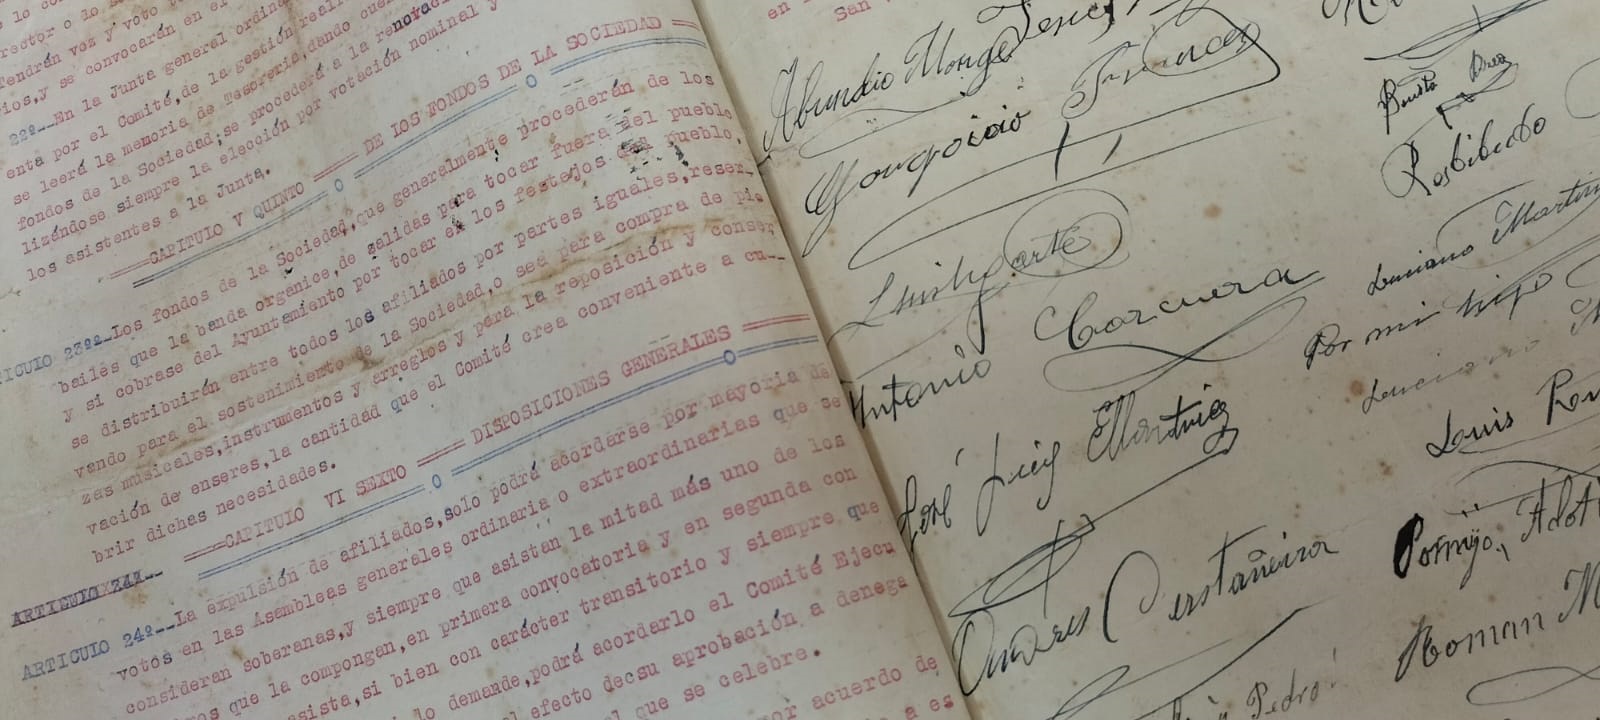 rector o
Tendrán voz y voto
ios,y se convocarán en el
22º__En la Junta general ordin
enta por el Comité,de la gestión reali
se leerá la memoria de Tesoreria,dando cue
fondos de la Sociedad;se procederá a la renovac
lizéndose siempre la elección por votación nominal y
los asistentes a la Junta.
CAPITULO V QUINTO DE LOS FONDOS DE LA SOCIEDAD
ICULO 23º__Los fondos de la Sociedad,que generalmente procederán de los
bailes que la banda organice,de salidas para tocar fuera del pueblo
y si cobrase del Ayuntamiento por tocar en los festejos del pueblo,
se distribuirán entre todos los afiliados por partes iguales,reser-
vando para el sostenimiento de la Sociedad,o sea para compra de pie
zas musicales,instrumentos y arreglos y para la reposición y conser
vación de enseres,la cantidad que el Comité crea conveniente a cu--
brir dichas necesidades.
CAPITULO VI SEXTO DISPOSICIONES GENERALES
ARTICULO 24º__La expulsión de afiliados,solo podrá acordarse por mayoria de
votos en las Asambleas generales ordinaria o extraordinarias que se
consideran soberanas,y siempre que asistan la mitad más uno de los
ros que la compongan,en primera convocatoria y en segunda con
asista,si bien con carácter transitorio y siempre que
lo demande,podrá acordarlo el Comité Ejecu
l efecto decsu aprobación a denega
l que se celebre.
or acuerdo de
a es
en
San
Abundio Monge
Luis Ugarte
Antonio Corcuera
José Luis Martinez
Andres Castañeira
Pedro
Benito Brea
Restituto
Luciano Martin
Por mi hijo
Luciano M
Luis Rom
Por mi hijo, Adol
Roman M